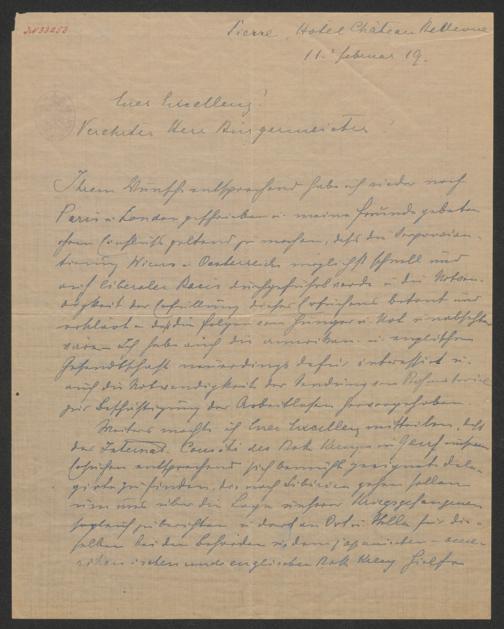 Sierre, Hotel Château Bellevue
11. Februar 19.
Euer Excellenz!
Verehrter Herr Bürgermeister!
Ihrem Wunsche entsprechend habe ich wieder nach
Paris u. London geschrieben u. meine Freunde gebeten
ihren Einfluß geltend zu machen, daß die Approvisio-
nierung Wiens u. Oesterreichs möglichst schnell und
auf liberaler Basis durchgeführt werde u. die Notwen-
digkeit der Erfüllung dieses Ersuchens betont und
erklärt daß die Folgen von Hunger u. Not unabsehbar
wären. Ich habe auch die amerikan. u. englische
Gesandtschaft neuerdings dafür interessirt u.
auch die Notwendigkeit der Sendung von Rohmaterial
zur Beschäftigung der Arbeitslosen hervorgehoben.
Weiters möchte ich Euer Excellenz mitteilen, daß
das Internat. Comité des Roten Kreuzes in Genf unserem
Ersuchen entsprechend sich bemüht geeignete Dele-
girte zu finden, die nach Sibirien gehen sollen
um uns über die Lage unserer Kriegsgefangenen
sogleich zu berichten u. dort an Ort u. Stelle für die-
selben bei den Behörden u. dem japanischen - ame-
rikanischen und englischen Roten Kreuz Hilfe